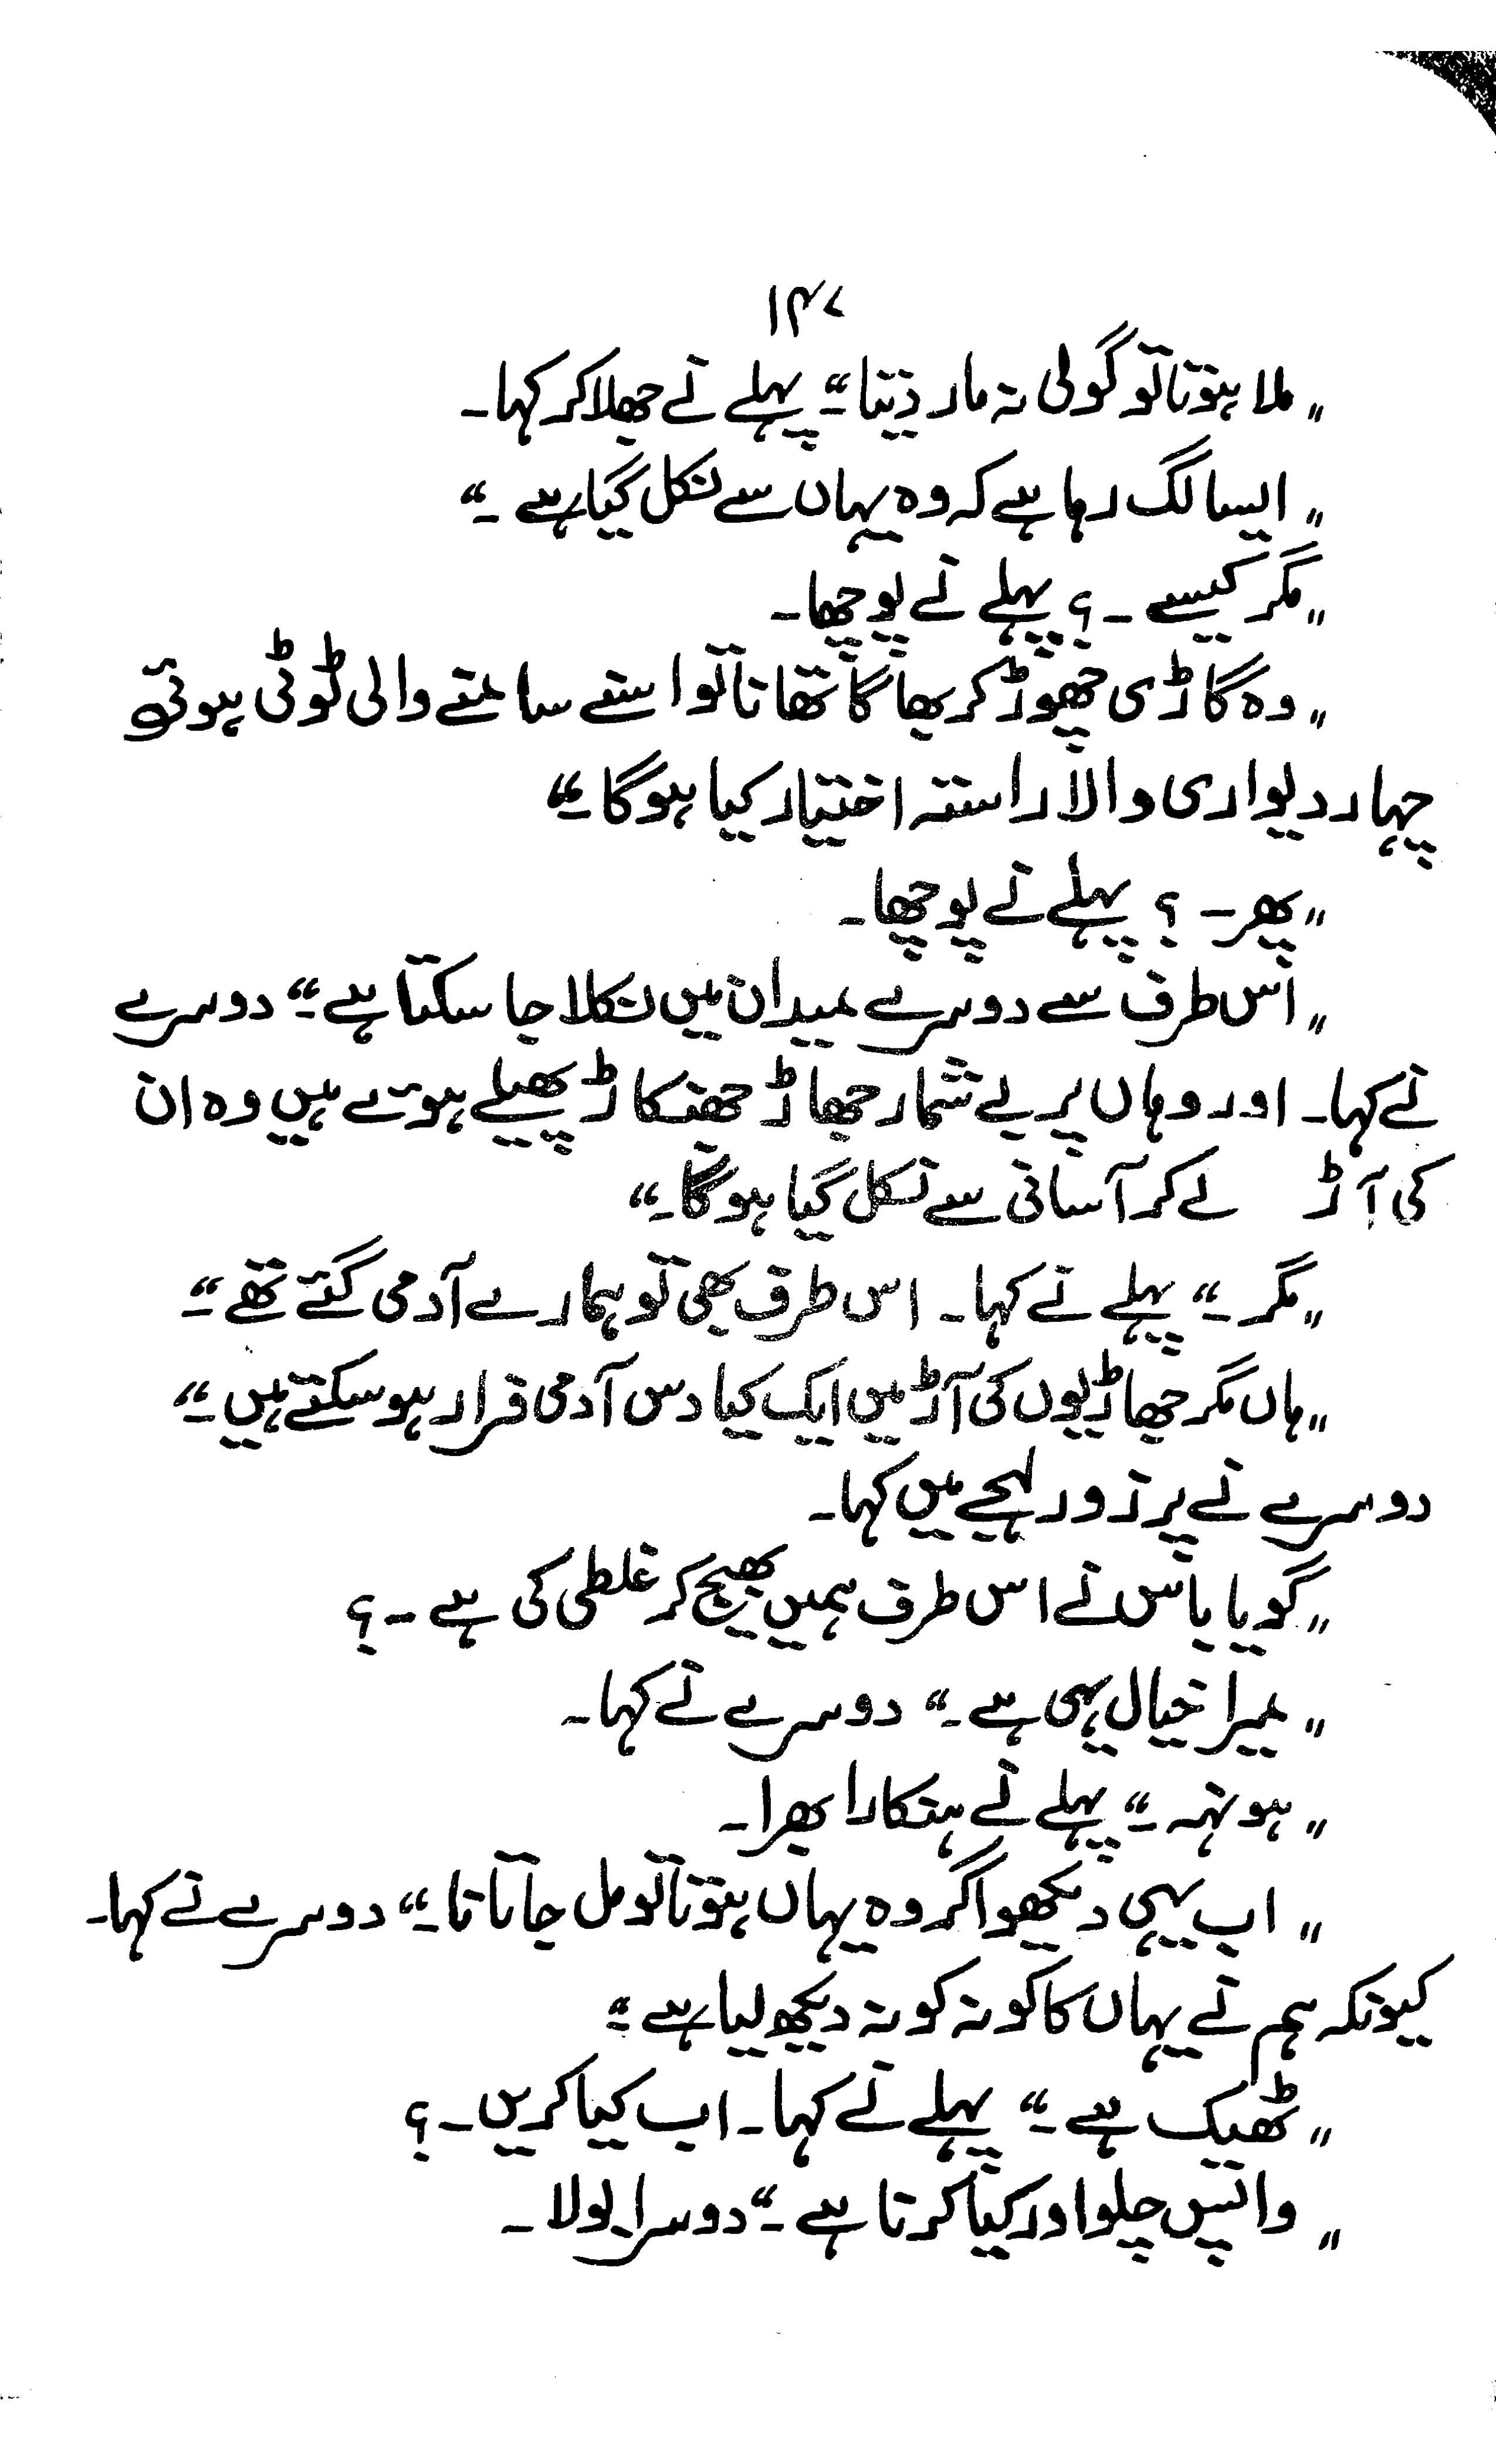 ۱۴۷
"ملا ہوتا تو گولی نہ مار دیتا۔" پہلے نے جھلا کر کہا۔
"ایسا لگ رہا ہے کہ وہ یہاں سے نکل گیا ہے۔"
"مگر کیسے۔؟ پہلے نے پوچھا۔
"وہ گاڑی چھوڑ کر بھاگا تھا نا تو اسنے سامنے والی ٹوٹی ہوئی
چہار دیواری والا راستہ اختیار کیا ہوگا۔"
"پھر۔؟ پہلے نے پوچھا۔
"اس طرف سے دوسرے میدان میں نکلا جا سکتا ہے۔" دوسرے
نے کہا۔ اور وہاں پر بے شمار جھاڑ جھنکاڑ پھیلے ہوئے ہیں وہ ان
کی آڑ لے کر آسانی سے نکل گیا ہوگا۔"
"مگر۔" پہلے نے کہا۔ اس طرف بھی تو ہمارے آدمی گئے تھے۔"
"ہاں مگر جھاڑیوں کی آڑ میں ایک کیا دس آدمی فرار ہو سکتے ہیں۔"
دوسرے نے پر زور لہجے میں کہا۔
"گویا باس نے اس طرف ہمیں بھیج کر غلطی کی ہے۔؟
"میرا خیال یہی ہے۔" دوسرے نے کہا۔
"ہونہہ۔" پہلے نے ہنکارا بھرا۔
"اب یہی دیکھو اگر وہ یہاں ہوتا تو مل جاتا نا۔" دوسرے نے کہا۔
کیونکہ ہم نے یہاں کا کونہ کونہ دیکھ لیا ہے۔"
"ٹھیک ہے۔" پہلے نے کہا۔ اب کیا کریں۔؟
"واپس چلو اور کیا کرنا ہے۔" دوسرا بولا۔